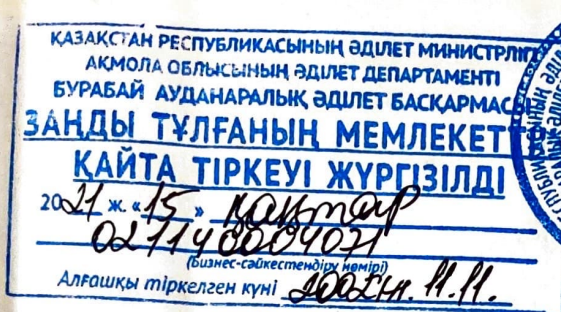 ҚАЗАҚСТАН РЕСПУБЛИКАСЫНЫҢ ӘДІЛЕТ МИНИСТРЛІГІ
АҚМОЛА ОБЛЫСЫНЫҢ ӘДІЛЕТ ДЕПАРТАМЕНТІ
БУРАБАЙ АУДАНАРАЛЫҚ ӘДІЛЕТ БАСҚАРМАСЫ
ЗАҢДЫ ТҰЛҒАНЫҢ МЕМЛЕКЕТТІК
ҚАЙТА ТІРКЕУІ ЖҮРГІЗІЛДІ
2021 ж. «15» қаңтар
021140004071
(Бизнес-сәйкестендіру нөмірі)
Алғашқы тіркелген күні 2002ж. 11.11.